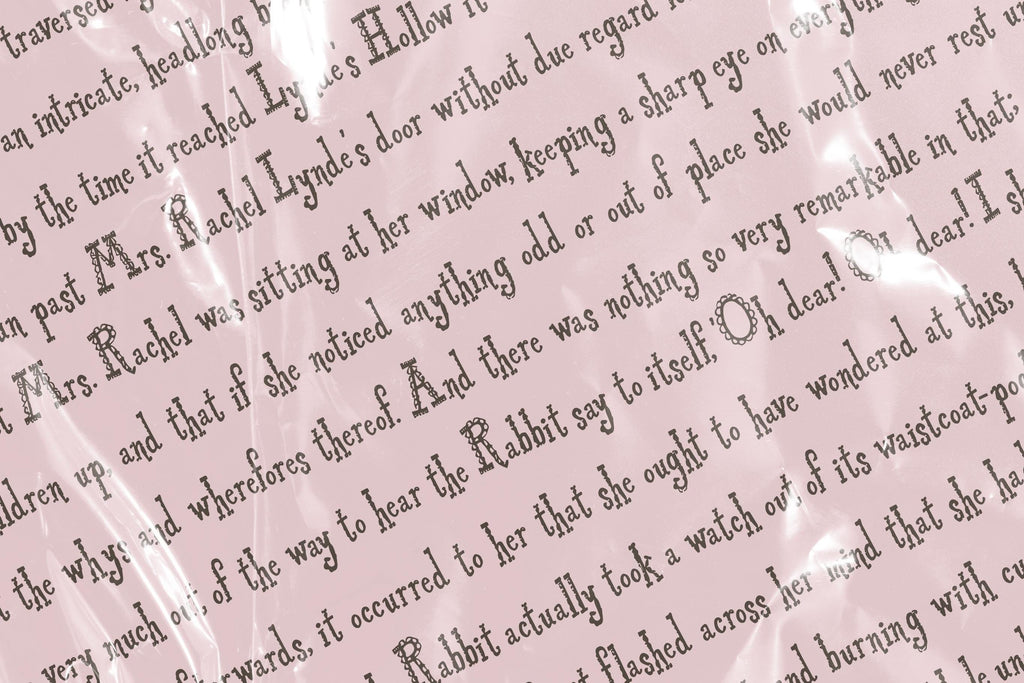 traversed
an intricate, headlong
by the time it reached Lynde's Hollow it
un past Mrs. Rachel Lynde's door without due regard
t Mrs. Rachel was sitting at her window, keeping a sharp eye on everything
ildren up, and that if she noticed anything odd or out of place she would never rest un
t the whys and wherefores thereof. And there was nothing so very remarkable in that;
very much out of the way to hear the Rabbit say to itself, 'Oh dear! Oh dear! I sh
fterwards, it occurred to her that she ought to have wondered at this,
Rabbit actually took a watch out of its waistcoat-poc
t flashed across her mind that she had
nd burning with cu
le un